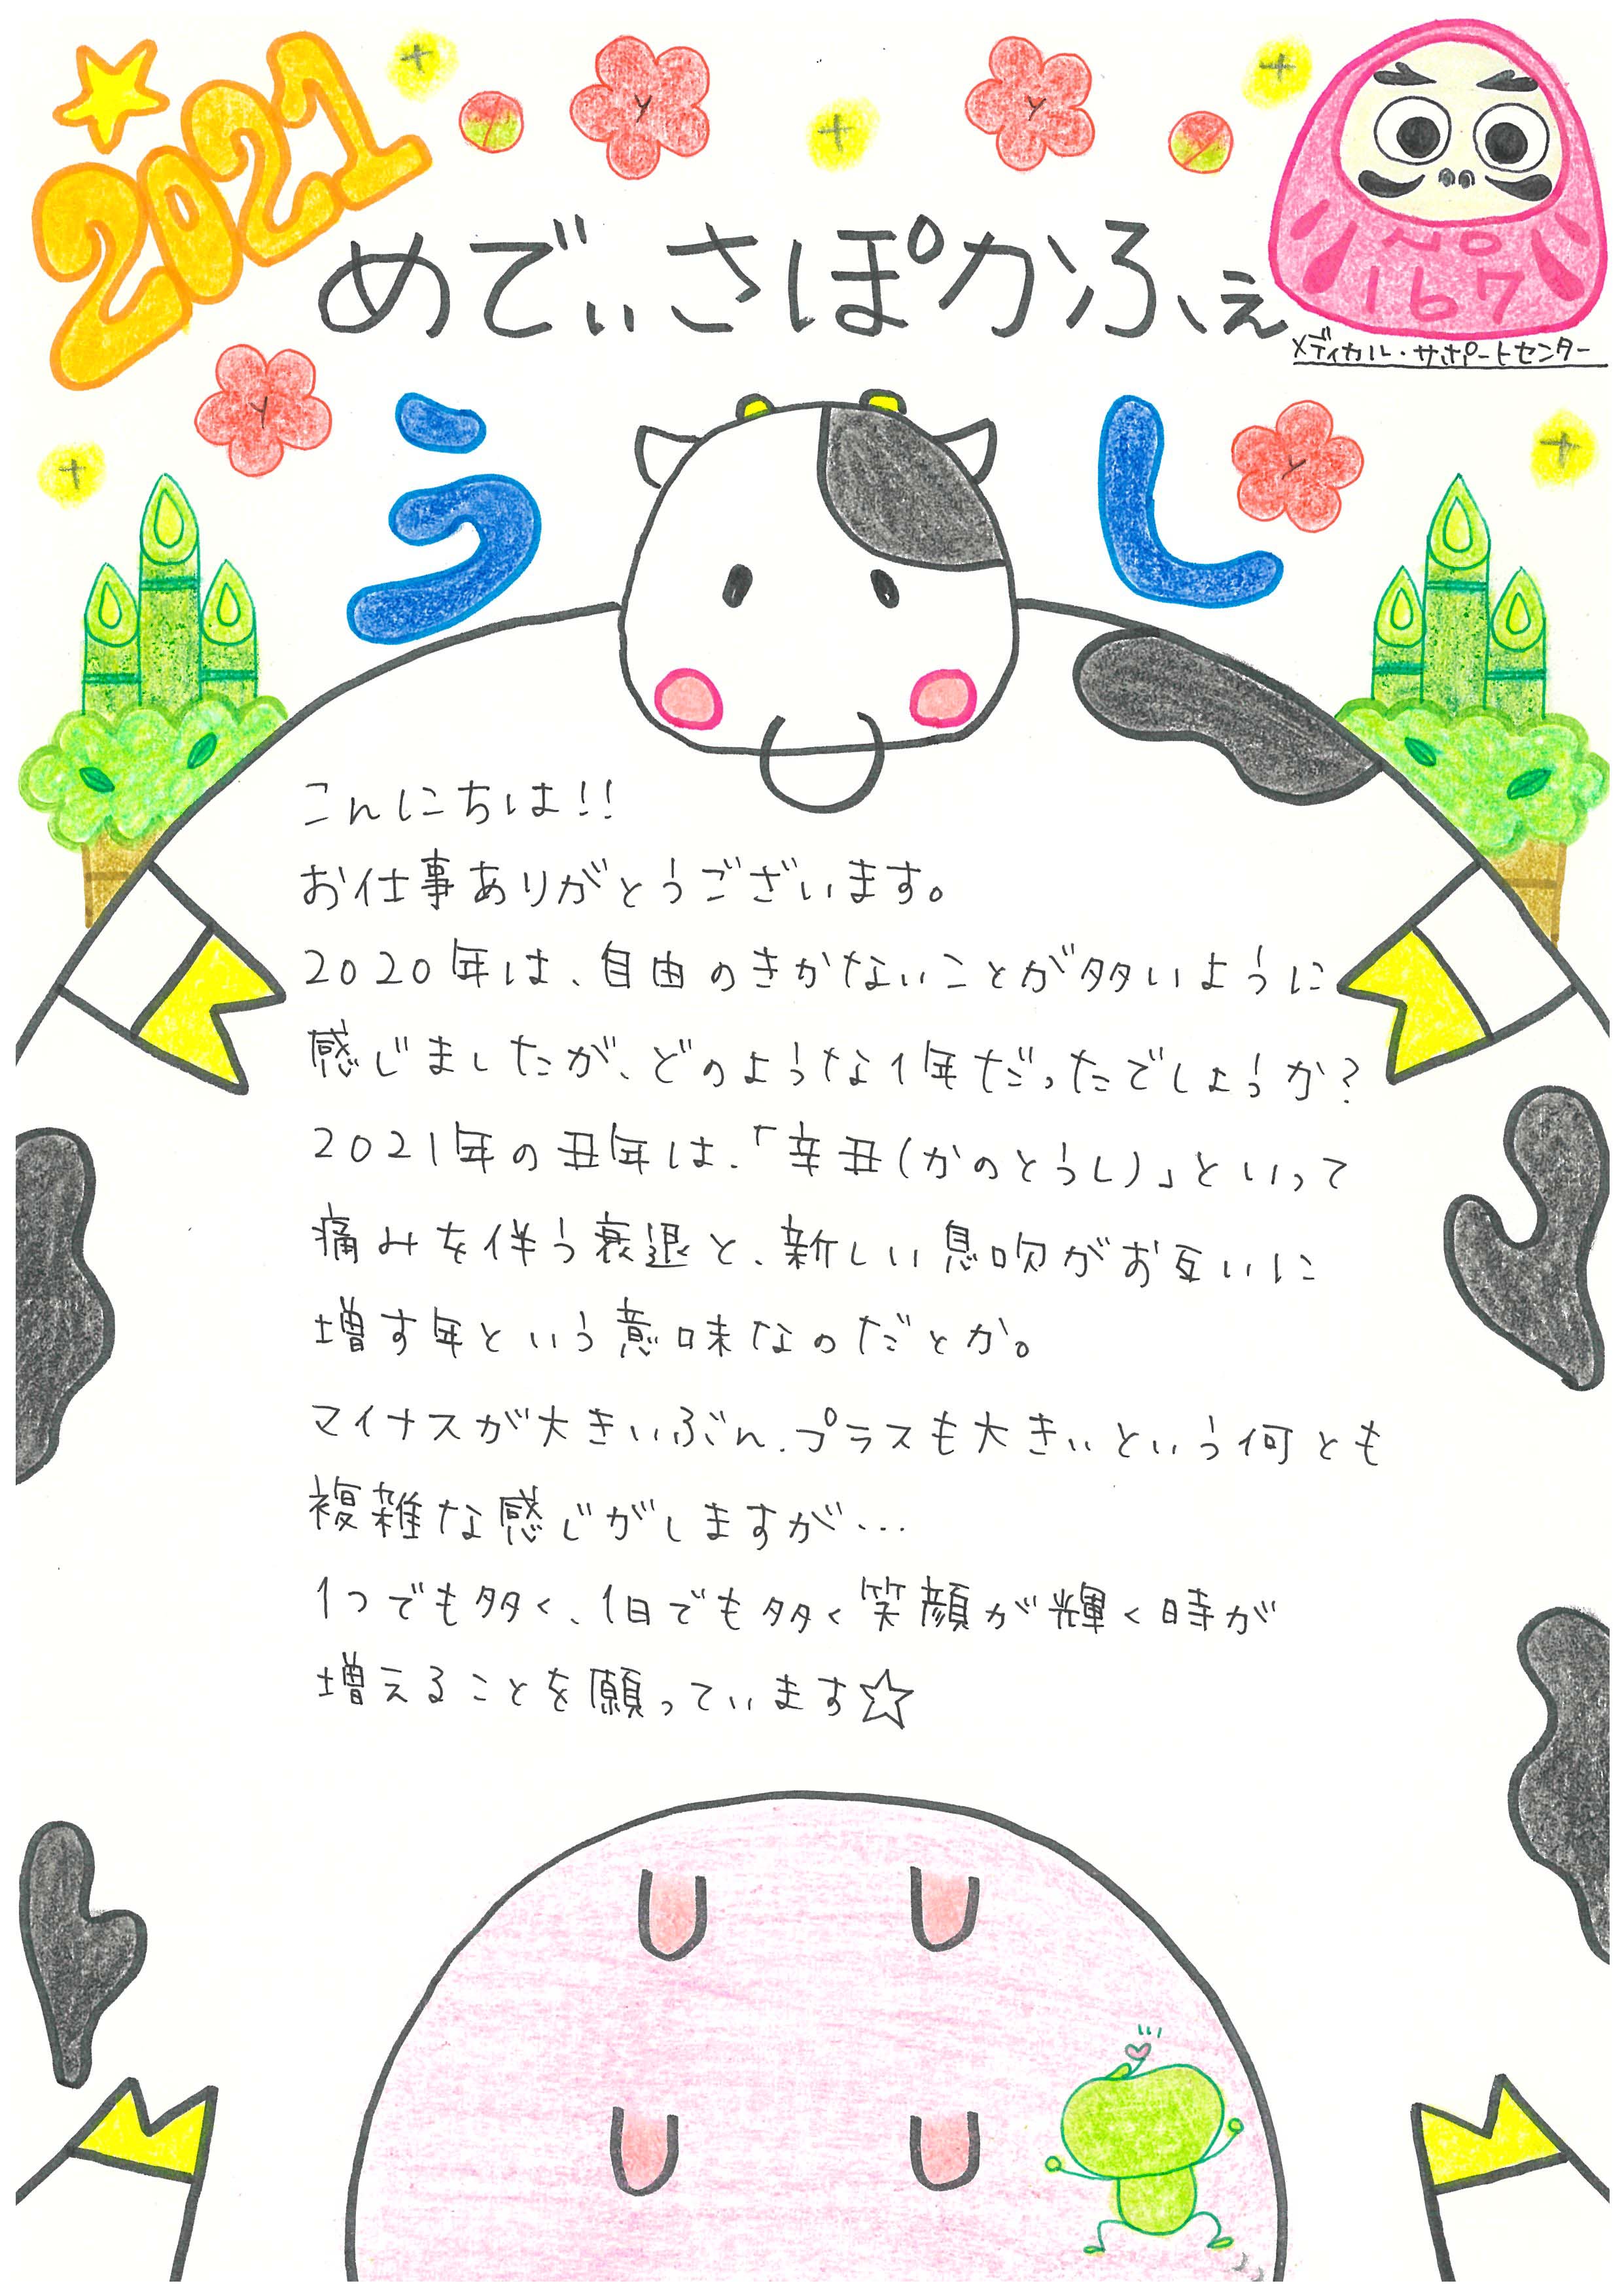 2021
めでぃさぽかふぇ
No
167
メディカル・サポートセンター
うし
こんにちは!!
お仕事ありがとうございます。
2020年は、自由のきかないことが多いように
感じましたが、どのような1年だったでしょうか?
2021年の丑年は、「辛丑(かのとうし)」といって
痛みを伴う衰退と、新しい息吹がお互いに
増す年という意味なのだとか。
マイナスが大きいぶん、プラスも大きいという何とも
複雑な感じがしますが…
1つでも多く、1日でも多く笑顔が輝く時が
増えることを願っています☆